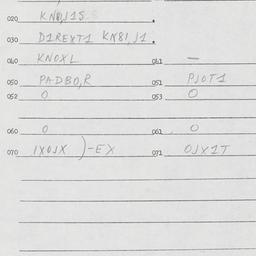 020 KNØJ1S .
030 D1REXT1 KN8I,J1.
040 KNOXL 041 —
050 PADBO,R 051 PJOT1
052 O 053 O
060 O 061 O
070 1XOJX )-EX 071 OJX1T